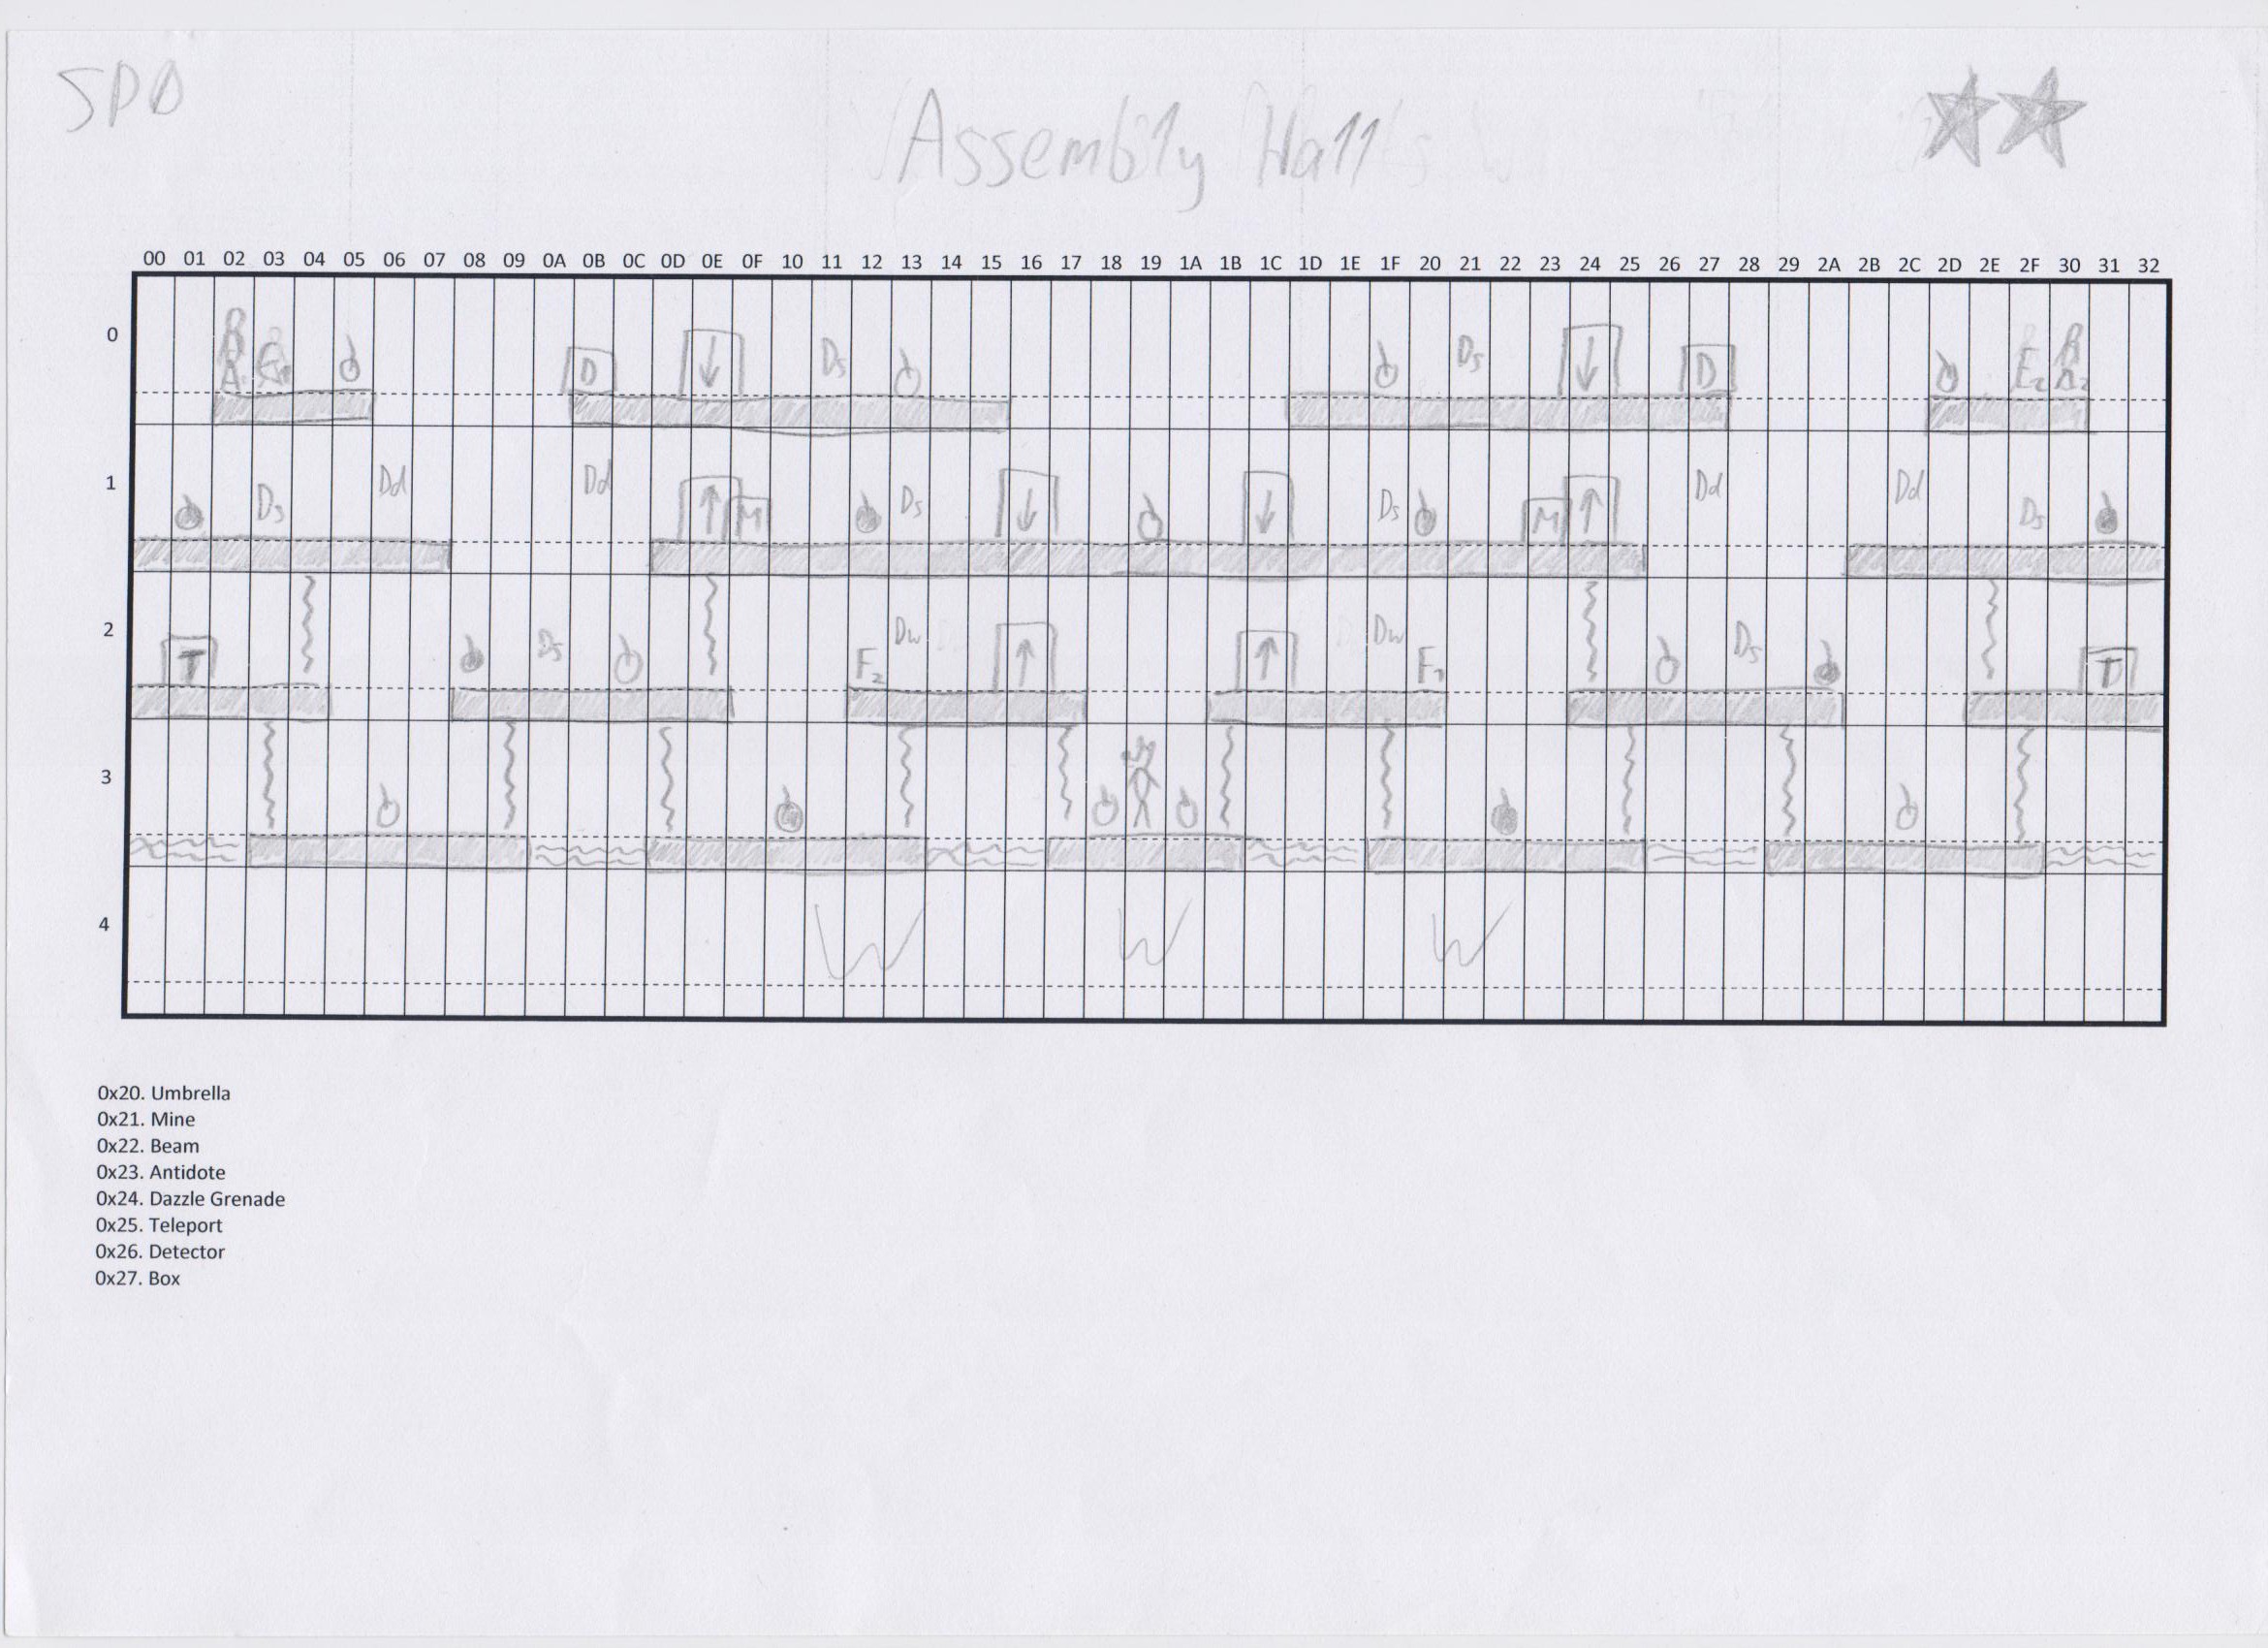 SPD
Assembly Hall
00 01 02 03 04 05 06 07 08 09 0A 0B 0C 0D 0E 0F 10 11 12 13 14 15 16 17 18 19 1A 1B 1C 1D 1E 1F 20 21 22 23 24 25 26 27 28 29 2A 2B 2C 2D 2E 2F 30 31 32
0
D Ds Ds D
1
Ds Dd Dd M Ds Ds M Dd Dd Ds
2
T Ds F2 Dw Dw F1 Ds T
3
4
W W W
0x20. Umbrella
0x21. Mine
0x22. Beam
0x23. Antidote
0x24. Dazzle Grenade
0x25. Teleport
0x26. Detector
0x27. Box